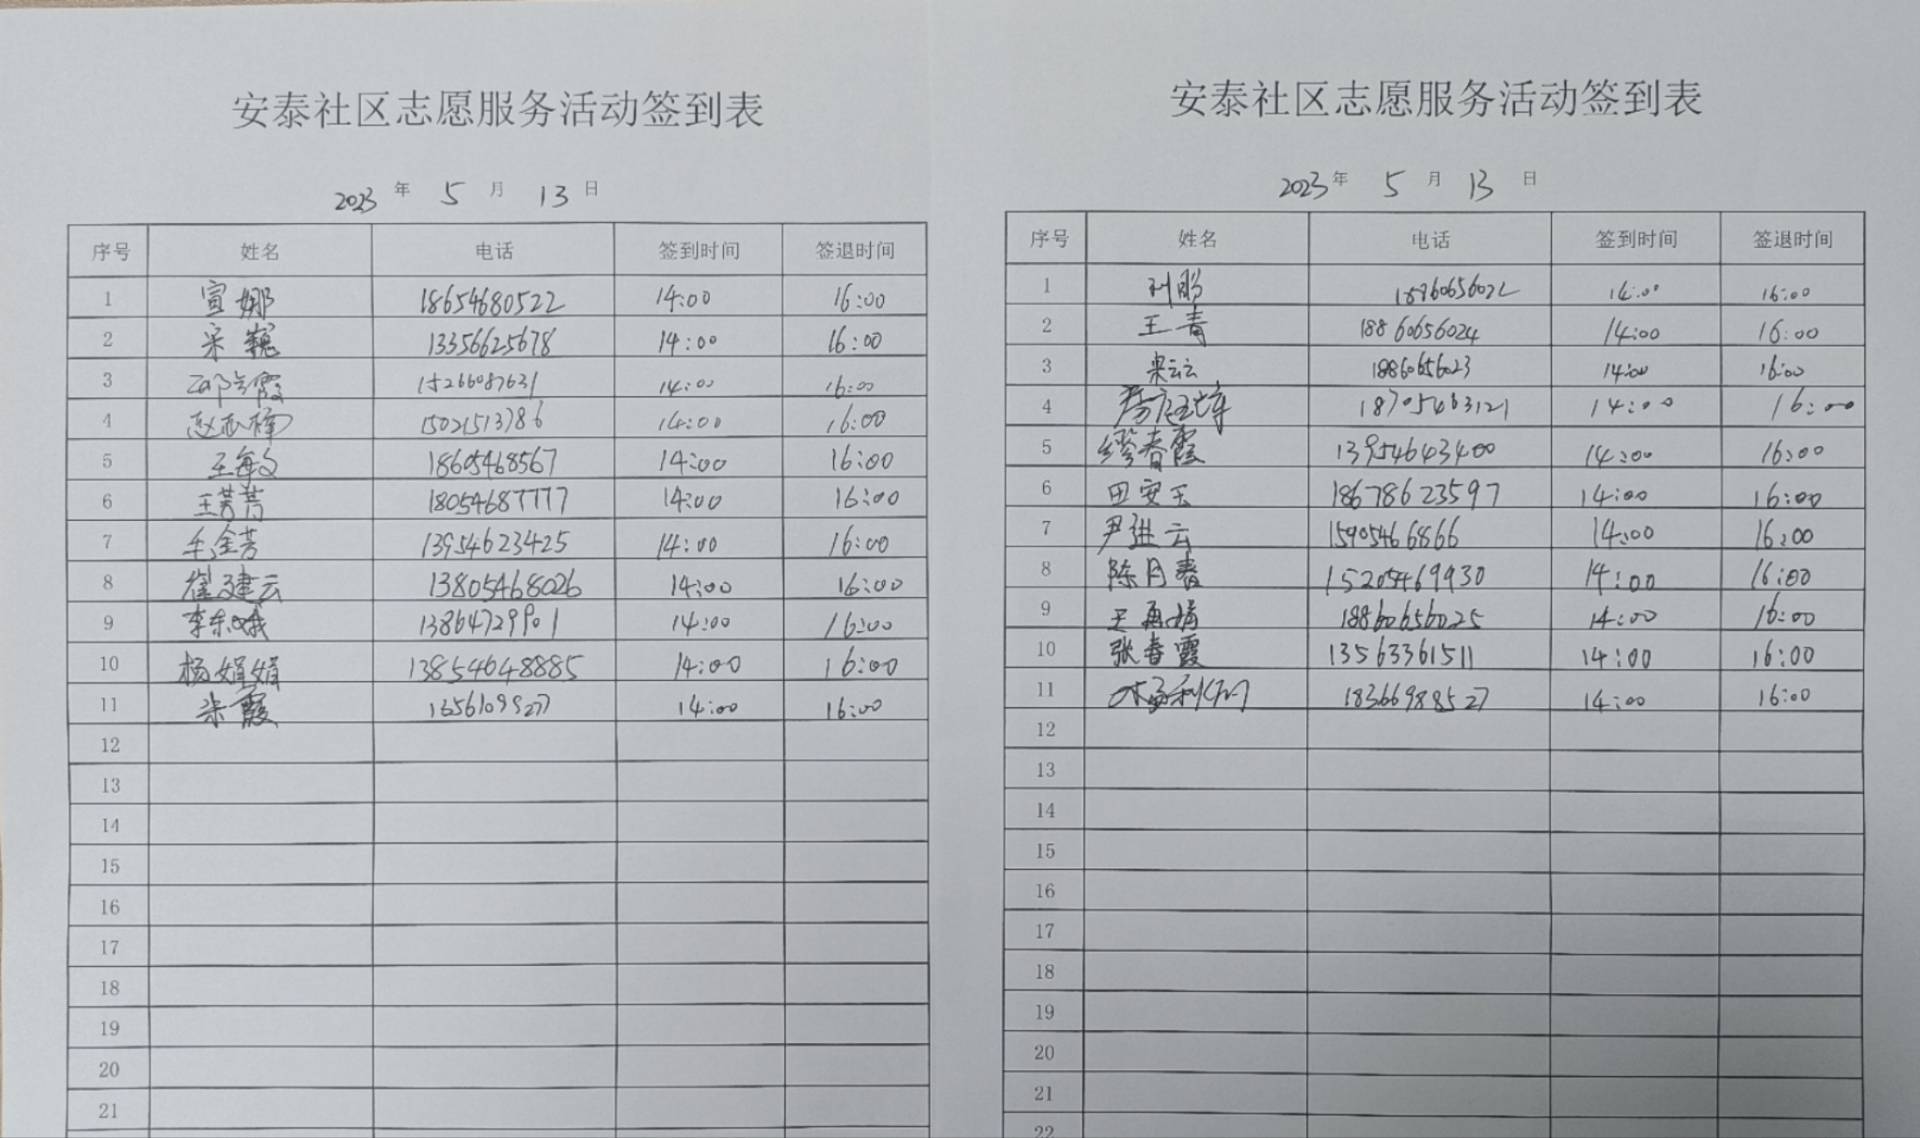 安泰社区志愿服务活动签到表
2023 年 5 月 13 日
序号 姓名 电话 签到时间 签退时间
1 宣娜 18654680522 14:00 16:00
2 宋巍 13356625678 14:00 16:00
3 15266087631 14:00 16:00
4 赵志楠 15021513786 14:00 16:00
5 王海文 18605468567 14:00 16:00
6 王芳菁 18054687777 14:00 16:00
7 牟金芳 13954623425 14:00 16:00
8 崔建云 13805468026 14:00 16:00
9 李东娥 13864729901 14:00 16:00
10 杨娟娟 13854648885 14:00 16:00
11 宋霞 14:00 16:00
12
13
14
15
16
17
18
19
20
21
安泰社区志愿服务活动签到表
2023 年 5 月 13 日
序号 姓名 电话 签到时间 签退时间
1 14:00 16:00
2 王青 18860656024 14:00 16:00
3 18860656023 14:00 16:00
4 18705463121 14:00 16:00
5 缪春霞 13954643400 14:00 16:00
6 田安玉 18678623597 14:00 16:00
7 尹进云 15905466866 14:00 16:00
8 陈月春 15205469930 14:00 16:00
9 18860656025 14:00 16:00
10 张春霞 13563361511 14:00 16:00
11 18366988527 14:00 16:00
12
13
14
15
16
17
18
19
20
21
22